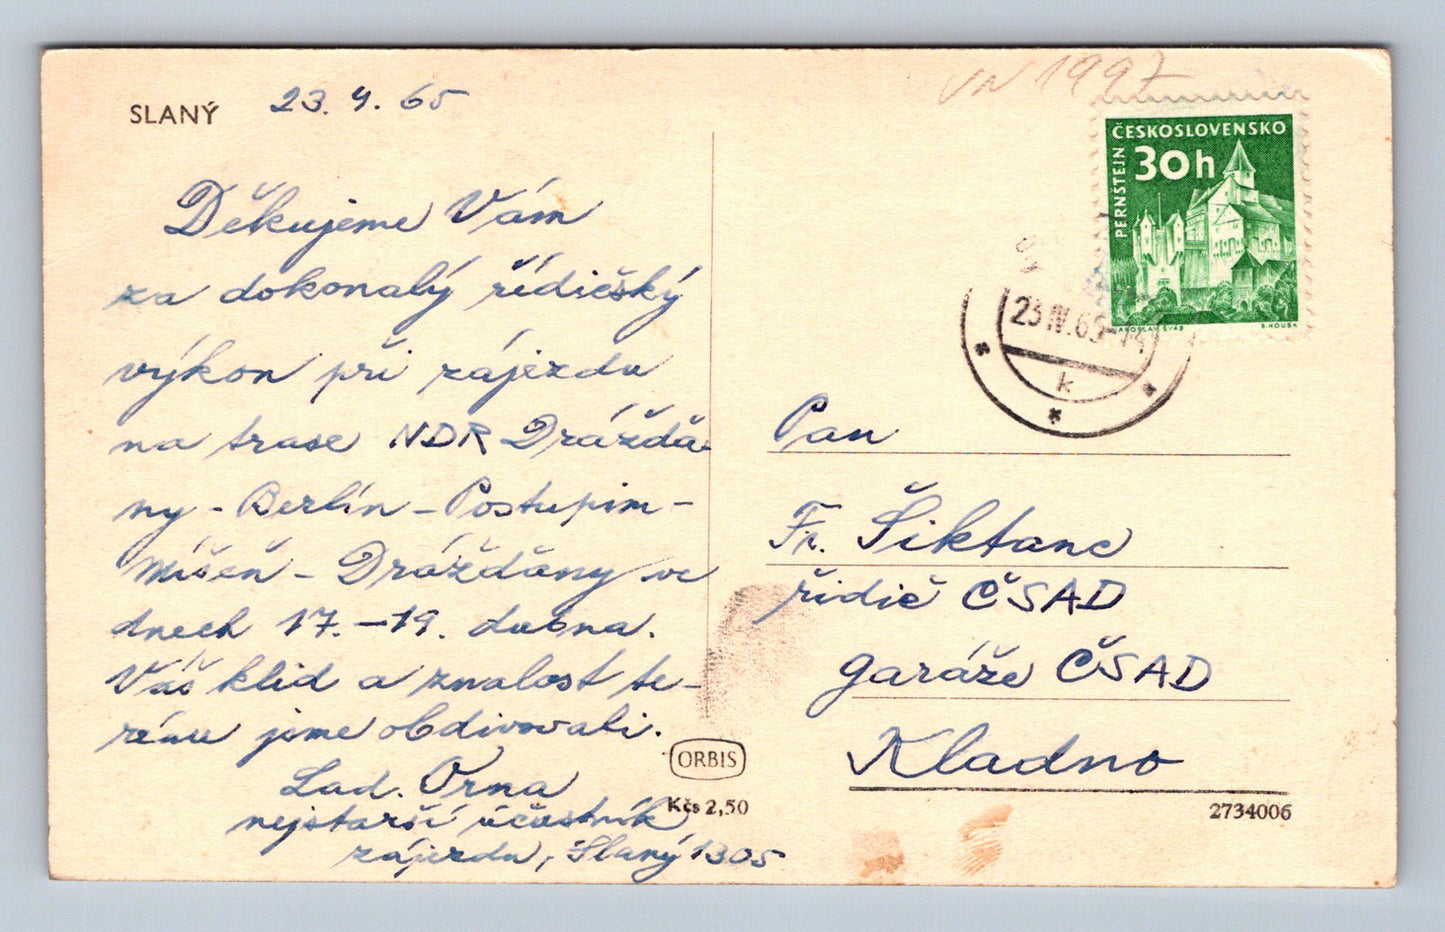 SLANÝ 23. 4. 65
Děkujeme Vám
za dokonalý řídičský
výkon při zájezdu
na trase NDR Drážďa-
ny - Berlín - Postupim -
Míšeň - Drážďany ve
dnech 17. - 19. dubna.
Váš klid a znalost te-
rénu jsme obdivovali.
Lad. Orna
nejstarší účastník
zájezdu, Slaný 1305
ORBIS
Kčs 2,50
VN 1997
ČESKOSLOVENSKO
30h
PERNŠTEJN
JAROSLAV ŠVÁB
B. HOUSA
23.IV.65-14
k
Pan
Fr. Šiktanc
řidič ČSAD
garáže ČSAD
Kladno
2734006